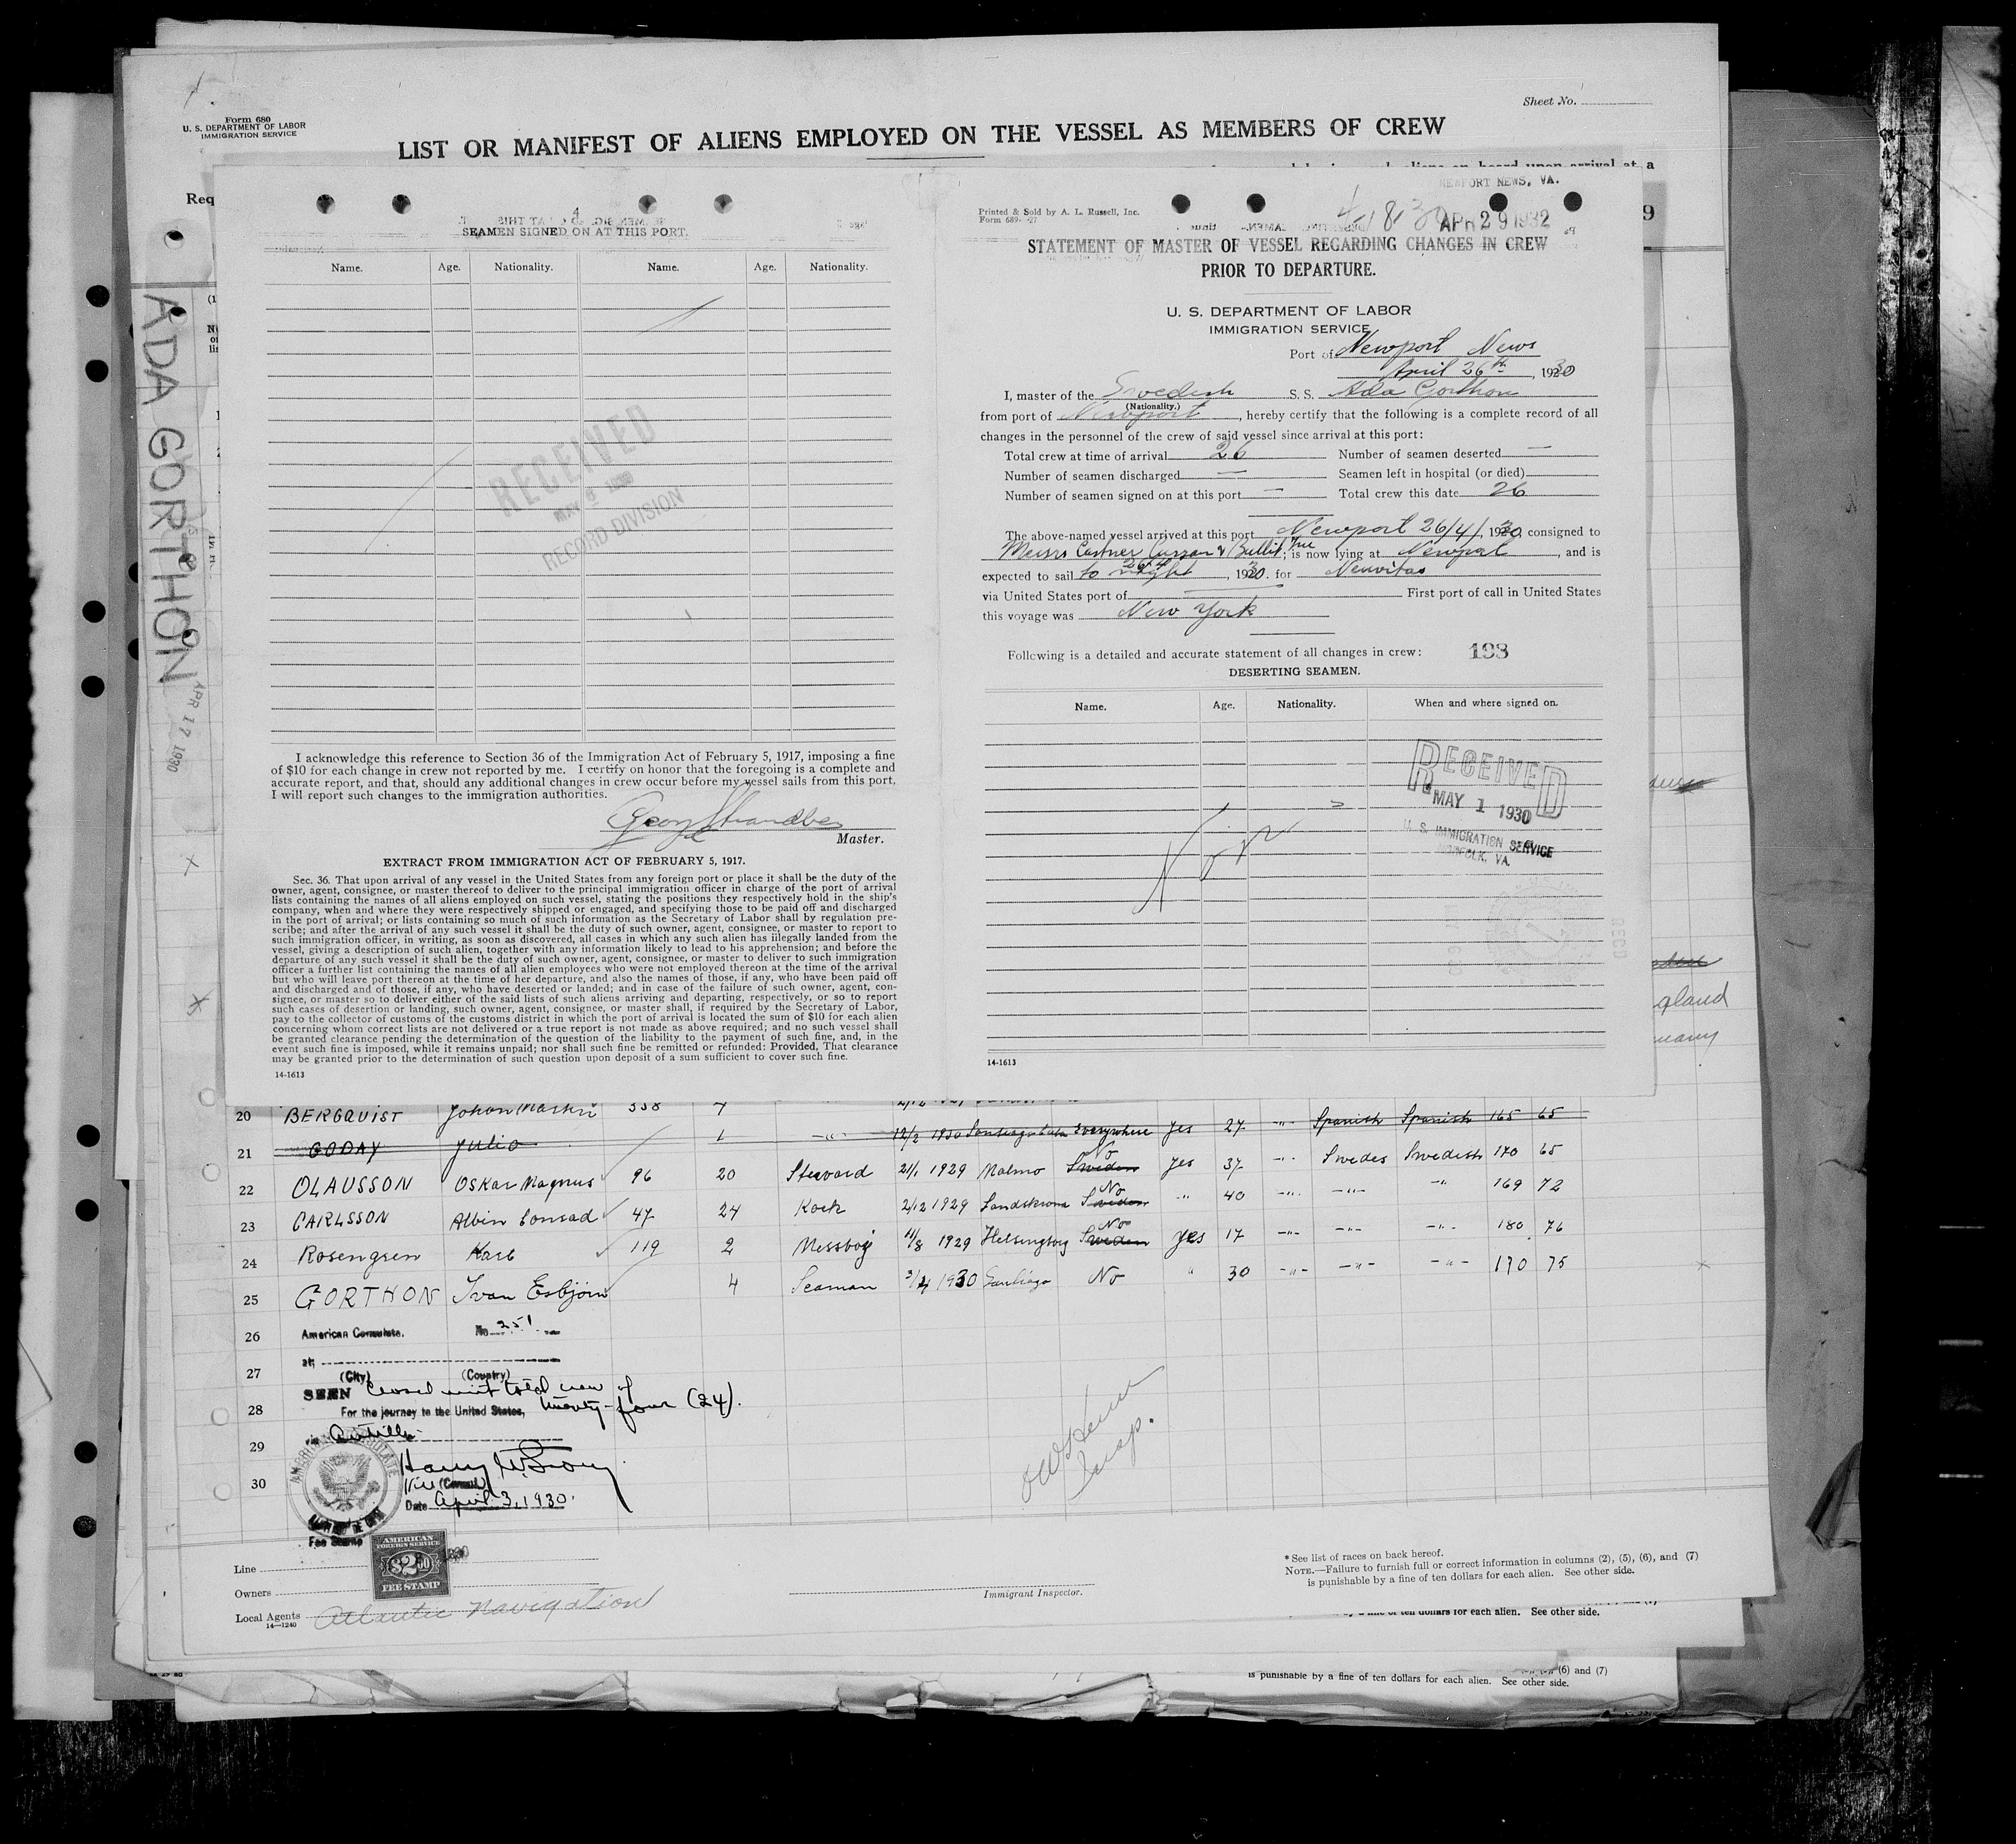 Sheet No.
Form 680
U. S. DEPARTMENT OF LABOR
IMMIGRATION SERVICE
LIST OR MANIFEST OF ALIENS EMPLOYED ON THE VESSEL AS MEMBERS OF CREW
Req
9
ADA GORTHON
APR 17 1930
4
SEAMEN SIGNED ON AT THIS PORT.
Name. Age. Nationality. Name. Age. Nationality.
RECEIVED
RECORD DIVISION
I acknowledge this reference to Section 36 of the Immigration Act of February 5, 1917, imposing a fine
of $10 for each change in crew not reported by me. I certify on honor that the foregoing is a complete and
accurate report, and that, should any additional changes in crew occur before my vessel sails from this port,
I will report such changes to the immigration authorities.
Master.
EXTRACT FROM IMMIGRATION ACT OF FEBRUARY 5, 1917.
Sec. 36. That upon arrival of any vessel in the United States from any foreign port or place it shall be the duty of the
owner, agent, consignee, or master thereof to deliver to the principal immigration officer in charge of the port of arrival
lists containing the names of all aliens employed on such vessel, stating the positions they respectively hold in the ship's
company, when and where they were respectively shipped or engaged, and specifying those to be paid off and discharged
in the port of arrival; or lists containing so much of such information as the Secretary of Labor shall by regulation pre-
scribe; and after the arrival of any such vessel it shall be the duty of such owner, agent, consignee, or master to report to
such immigration officer, in writing, as soon as discovered, all cases in which any such alien has illegally landed from the
vessel, giving a description of such alien, together with any information likely to lead to his apprehension; and before the
departure of any such vessel it shall be the duty of such owner, agent, consignee, or master to deliver to such immigration
officer a further list containing the names of all alien employees who were not employed thereon at the time of the arrival
but who will leave port thereon at the time of her departure, and also the names of those, if any, who have been paid off
and discharged and of those, if any, who have deserted or landed; and in case of the failure of such owner, agent, con-
signee, or master so to deliver either of the said lists of such aliens arriving and departing, respectively, or so to report
such cases of desertion or landing, such owner, agent, consignee, or master shall, if required by the Secretary of Labor,
pay to the collector of customs of the customs district in which the port of arrival is located the sum of $10 for each alien
concerning whom correct lists are not delivered or a true report is not made as above required; and no such vessel shall
be granted clearance pending the determination of the question of the liability to the payment of such fine, and, in the
event such fine is imposed, while it remains unpaid; nor shall such fine be remitted or refunded: Provided, That clearance
may be granted prior to the determination of such question upon deposit of a sum sufficient to cover such fine.
14-1613
NEWPORT NEWS, VA.
Printed & Sold by A. L. Russell, Inc.
Form 689-
APR 29 1932
STATEMENT OF MASTER OF VESSEL REGARDING CHANGES IN CREW
PRIOR TO DEPARTURE.
U. S. DEPARTMENT OF LABOR
IMMIGRATION SERVICE
Port of Newport News
April 26th, 1930
I, master of the Swedish S. S. Ada Gorthon
(Nationality.)
from port of Newport, hereby certify that the following is a complete record of all
changes in the personnel of the crew of said vessel since arrival at this port:
Total crew at time of arrival 26 Number of seamen deserted —
Number of seamen discharged — Seamen left in hospital (or died)
Number of seamen signed on at this port — Total crew this date 26
The above-named vessel arrived at this port Newport 26/4/, 1930, consigned to
Messrs Castner Curran & Bullit Inc; is now lying at Newport, and is
expected to sail to night, 1930. for Neuvitas
via United States port of First port of call in United States
this voyage was New York
Following is a detailed and accurate statement of all changes in crew: 193
DESERTING SEAMEN.
Name. Age. Nationality. When and where signed on.
RECEIVED
MAY 1 1930
U. S. IMMIGRATION SERVICE
NORFOLK, VA.
RECD
14-1613
gland
many
20 BERGQUIST Johan Martin 338 7
21 GODAY Julio 1 -"- 12/2 1930 Santiago Cuba Everywhere Yes 27 -"- Spanish Spanish 165 65
22 OLAUSSON Oskar Magnus 96 20 Steward 21/1 1929 Malmo Sweden No Yes 37 -"- Swedes Swedish 170 65
23 CARLSSON Albin Conrad 47 24 Kock 2/12 1929 Landskrona Sweden No " 40 -"- -"- -"- 169 72
24 Rosengren Karl 119 2 Messboy 11/8 1929 Helsingborg Sweden No yes 17 -"- -"- -"- 180 76
25 GORTHON Ivan Esbjörn 4 Seaman 3/4 1930 Santiago No " 30 -"- -"- -"- 170 75
26 American Consulate. No 251
27 at
(City) (Country)
SEEN total crew of
28 For the journey to the United States, twenty-four (24).
29 via Antilla
30 (Consul)
Date April 3, 1930.
Fee Stamp
AMERICAN
FOREIGN SERVICE
$2.00
FEE STAMP
Insp.
Line
Owners
Local Agents Atlantic Navigation
14—1240
Immigrant Inspector.
* See list of races on back hereof.
NOTE.—Failure to furnish full or correct information in columns (2), (5), (6), and (7)
is punishable by a fine of ten dollars for each alien. See other side.
of ten dollars for each alien. See other side.
(6) and (7)
is punishable by a fine of ten dollars for each alien. See other side.